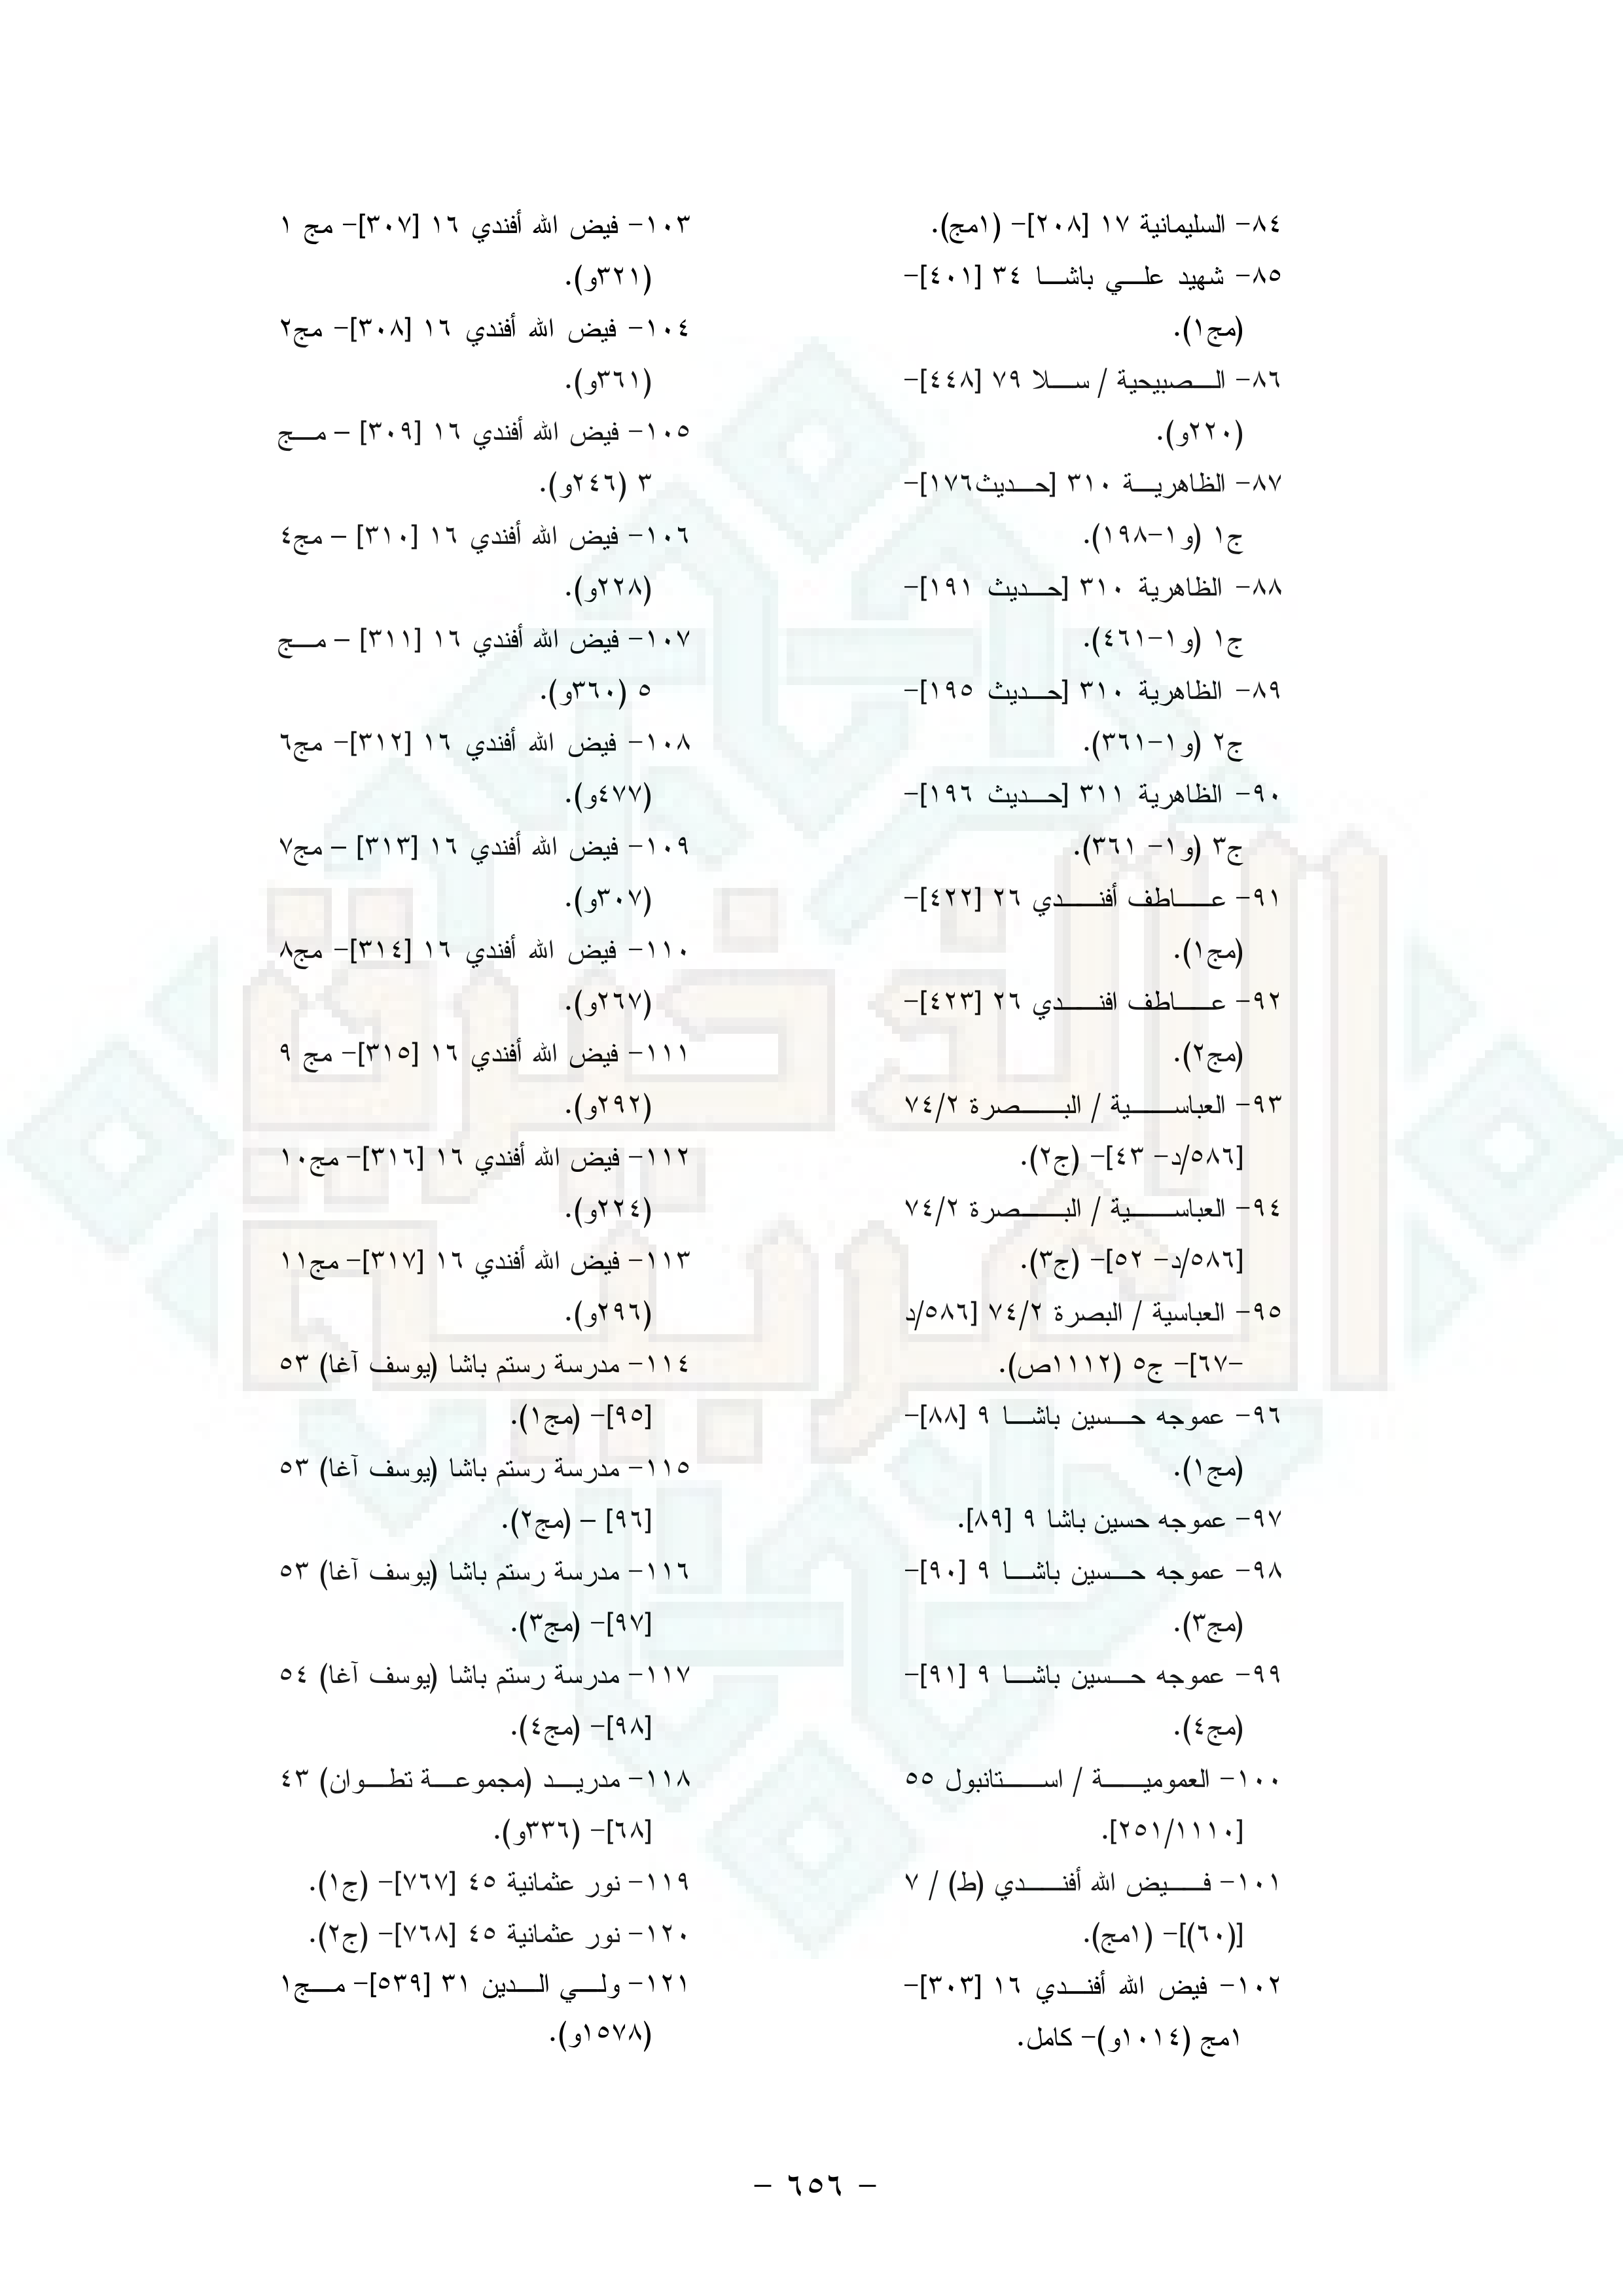 ٨٤- السليمانية ١٧ [٢٠٨]- (١مج).
٨٥- شهيد علي باشا ٣٤ [٤٠١]-
(مج١).
٨٦- الصبيحية / سلا ٧٩ [٤٤٨]-
(٢٢٠و).
٨٧- الظاهرية ٣١٠ [حديث١٧٦]-
ج١ (و١-١٩٨).
٨٨- الظاهرية ٣١٠ [حديث ١٩١]-
ج١ (و١-٤٦١).
٨٩- الظاهرية ٣١٠ [حديث ١٩٥]-
ج٢ (و١-٣٦١).
٩٠- الظاهرية ٣١١ [حديث ١٩٦]-
ج٣ (و١- ٣٦١).
٩١- عاطف أفندي ٢٦ [٤٢٢]-
(مج١).
٩٢- عاطف افندي ٢٦ [٤٢٣]-
(مج٢).
٩٣- العباسية / البصرة ٧٤/٢
[٥٨٦/د- ٤٣]- (ج٢).
٩٤- العباسية / البصرة ٧٤/٢
[٥٨٦/د- ٥٢]- (ج٣).
٩٥- العباسية / البصرة ٧٤/٢ [٥٨٦/د
-٦٧]- ج٥ (١١١٢ص).
٩٦- عموجه حسين باشا ٩ [٨٨]-
(مج١).
٩٧- عموجه حسين باشا ٩ [٨٩].
٩٨- عموجه حسين باشا ٩ [٩٠]-
(مج٣).
٩٩- عموجه حسين باشا ٩ [٩١]-
(مج٤).
١٠٠- العمومية / استانبول ٥٥
[٢٥١/١١١٠].
١٠١- فيض الله أفندي (ط) / ٧
[(٦٠)]- (١مج).
١٠٢- فيض الله أفندي ١٦ [٣٠٣]-
١مج (١٠١٤و)- كامل.
١٠٣- فيض الله أفندي ١٦ [٣٠٧]- مج ١
(٣٢١و).
١٠٤- فيض الله أفندي ١٦ [٣٠٨]- مج٢
(٣٦١و).
١٠٥- فيض الله أفندي ١٦ [٣٠٩] – مج
٣ (٢٤٦و).
١٠٦- فيض الله أفندي ١٦ [٣١٠] – مج٤
(٢٢٨و).
١٠٧- فيض الله أفندي ١٦ [٣١١] – مج
٥ (٣٦٠و).
١٠٨- فيض الله أفندي ١٦ [٣١٢]- مج٦
(٤٧٧و).
١٠٩- فيض الله أفندي ١٦ [٣١٣] – مج٧
(٣٠٧و).
١١٠- فيض الله أفندي ١٦ [٣١٤]- مج٨
(٢٦٧و).
١١١- فيض الله أفندي ١٦ [٣١٥]- مج ٩
(٢٩٢و).
١١٢- فيض الله أفندي ١٦ [٣١٦]- مج١٠
(٢٢٤و).
١١٣- فيض الله أفندي ١٦ [٣١٧]- مج١١
(٢٩٦و).
١١٤- مدرسة رستم باشا (يوسف آغا) ٥٣
[٩٥]- (مج١).
١١٥- مدرسة رستم باشا (يوسف آغا) ٥٣
[٩٦] – (مج٢).
١١٦- مدرسة رستم باشا (يوسف آغا) ٥٣
[٩٧]- (مج٣).
١١٧- مدرسة رستم باشا (يوسف آغا) ٥٤
[٩٨]- (مج٤).
١١٨- مدريد (مجموعة تطوان) ٤٣
[٦٨]- (٣٣٦و).
١١٩- نور عثمانية ٤٥ [٧٦٧]- (ج١).
١٢٠- نور عثمانية ٤٥ [٧٦٨]- (ج٢).
١٢١- ولي الدين ٣١ [٥٣٩]- مج١
(١٥٧٨و).
- ٦٥٦ -